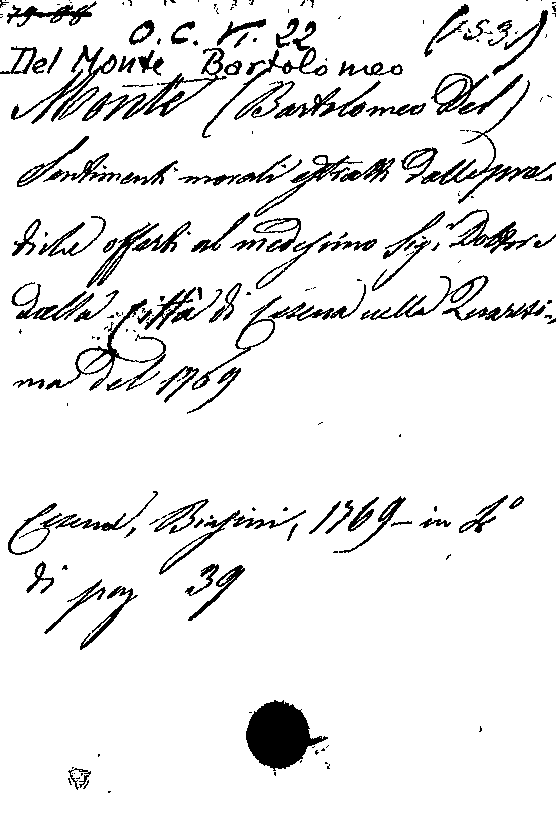 79-88
O. C. VI. 22 (15.3.)
Del Monte Bartolomeo
Monte (Bartolomeo Del)
Sentimenti morali estratti dalle pre-
diche offerti al medesimo Sig.r Dottore
dalla Città di Cesena nella Quaresi-
ma del 1769
Cesena, Biasini, 1769 - in 4º
di pag 39